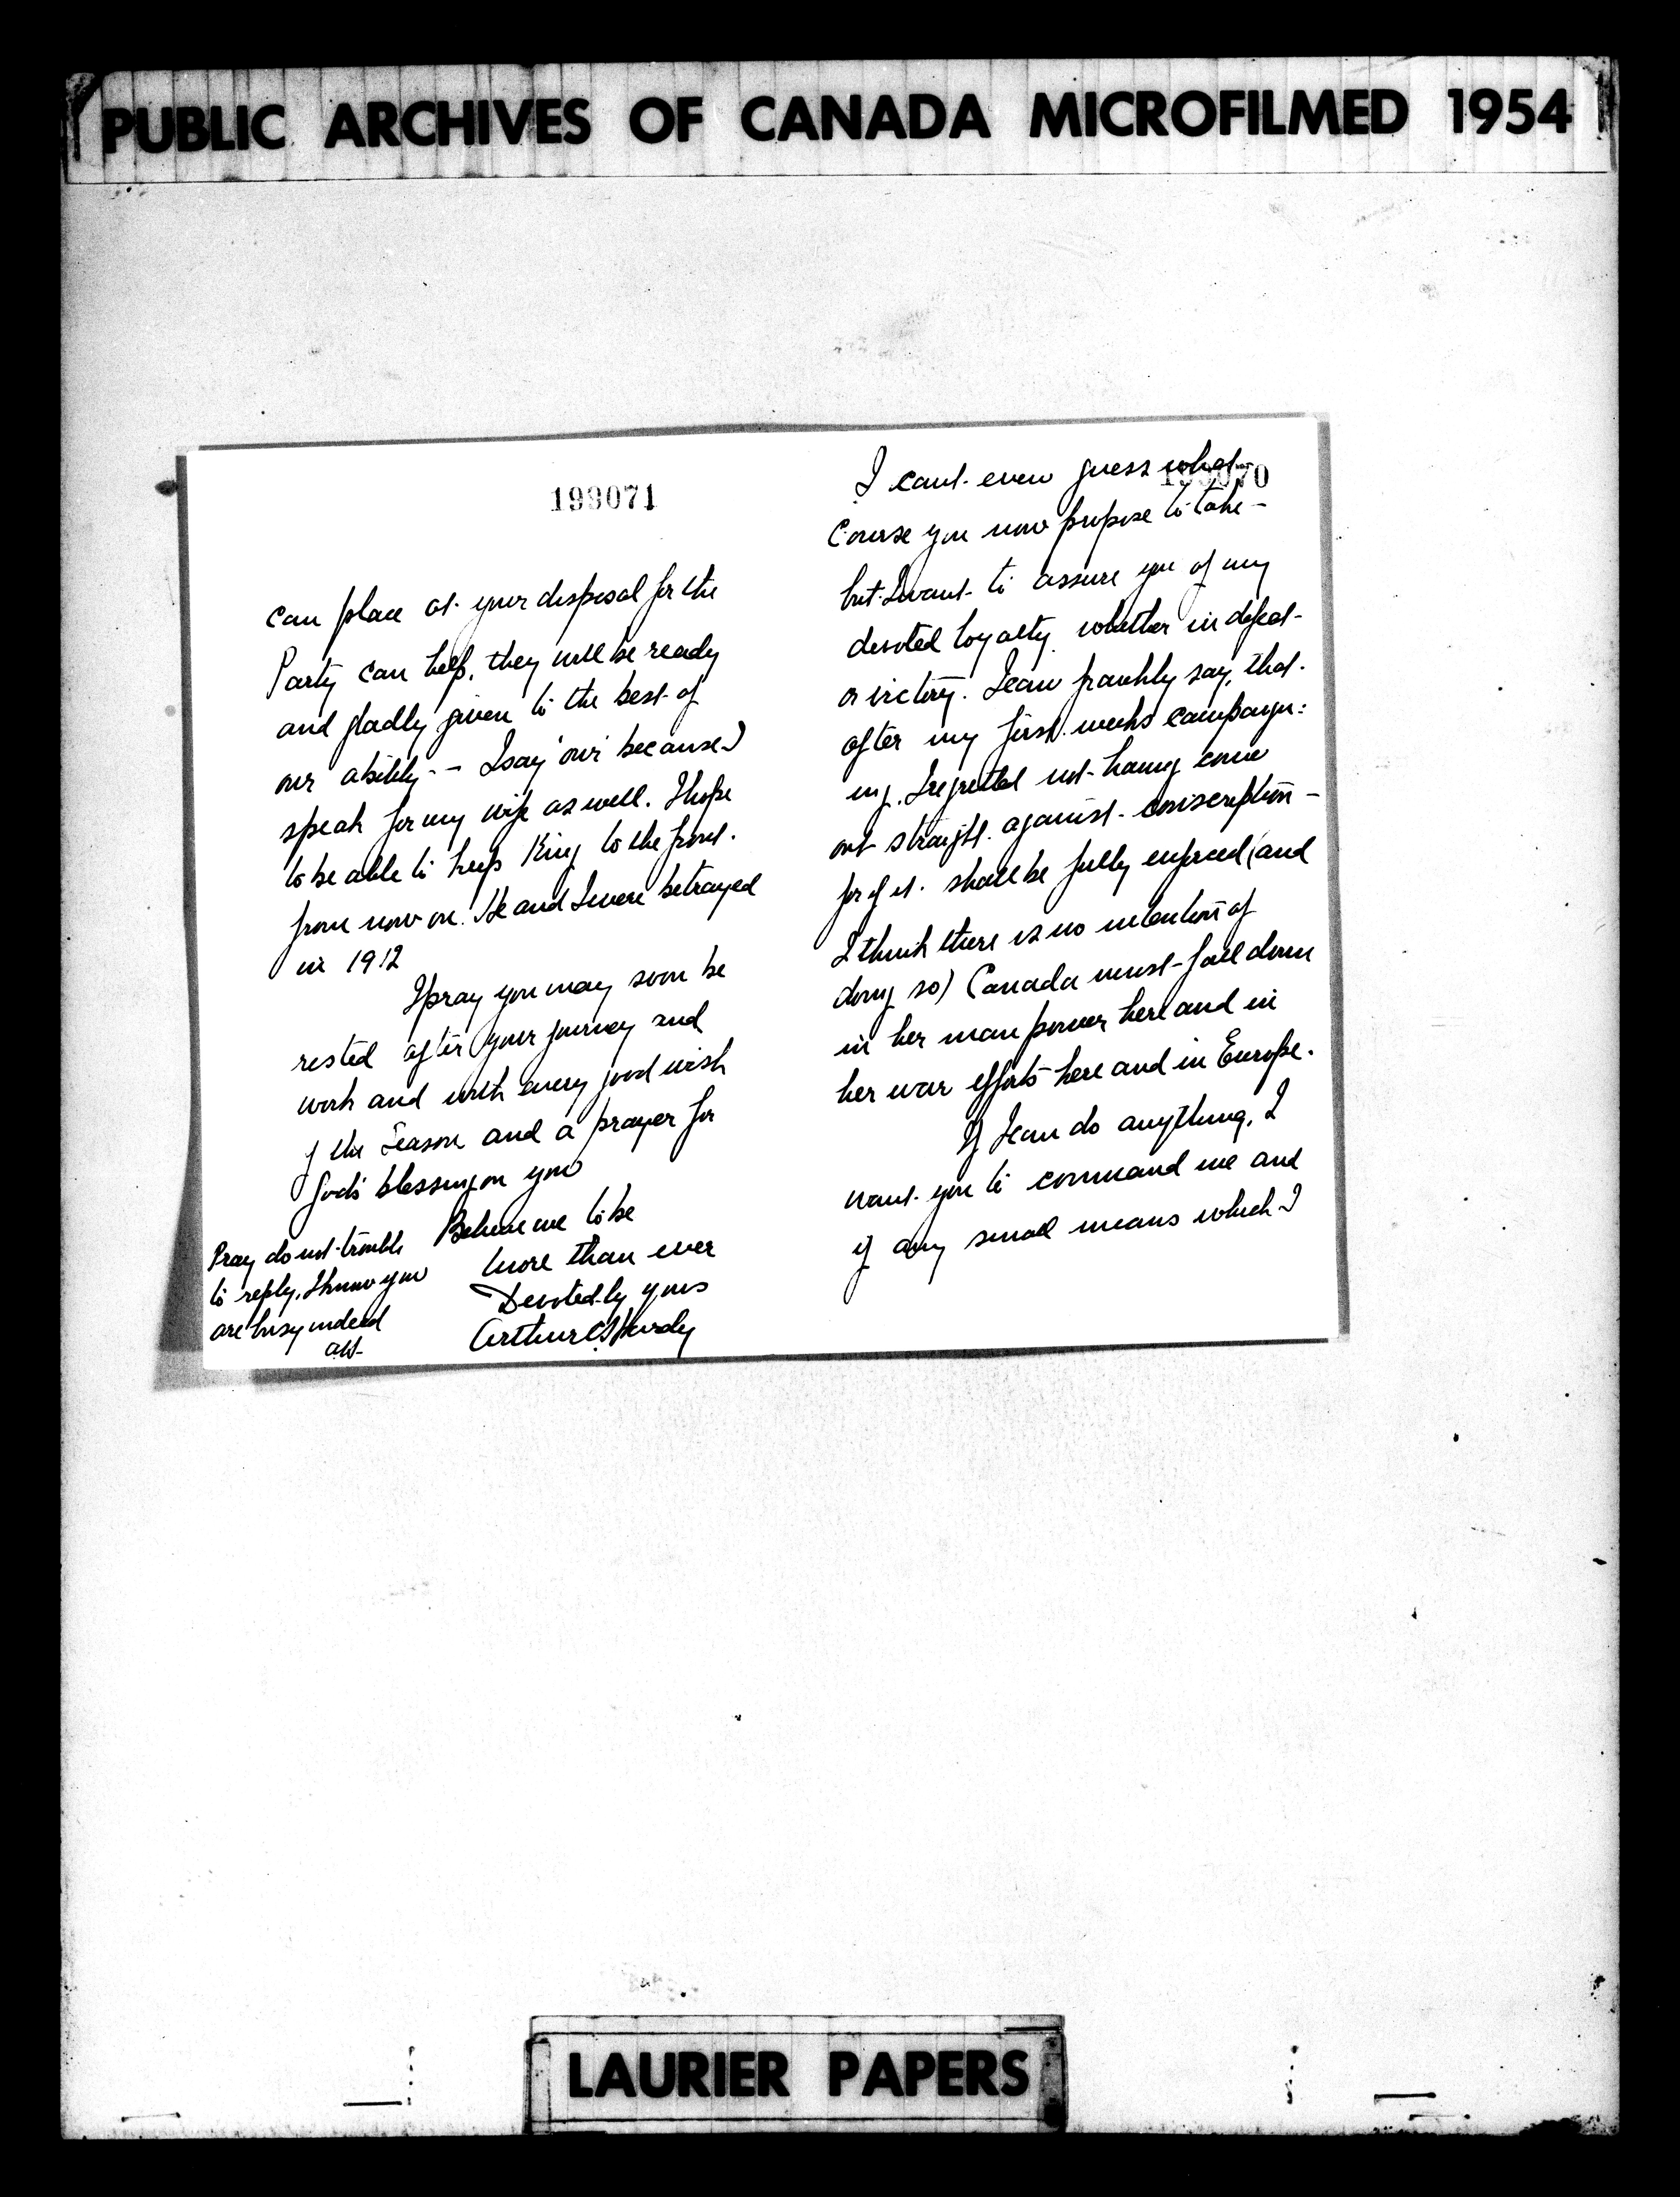 PUBLIC ARCHIVES OF CANADA MICROFILMED 1954
199070
I cant even guess what
course you now propose to take -
but I want to assure you of my
devoted loyalty whether in defeat
or victory. I can frankly say, that
after my first weeks campaign:
ing, I regretted not having come
out straight against conscription -
for if it shall be fully enforced (and
I think there is no intention of
doing so) Canada must fall down
in her man power here and in
her war efforts here and in Europe.
If I can do anything, I
want you to command me and
if any small means which I
199071
can place at your disposal for the
Party can help, they will be ready
and gladly given to the best of
our ability - - I say 'our' because I
speak for my wife as well. I hope
to be able to keep King to the front
from now on. He and I were betrayed
in 1912
I pray you may soon be
rested after your journey and
work and with every good wish
of the Season and a prayer for
God's blessing on you
Believe me to be
more than ever
Devotedly yours
Arthur C. Hardy
Pray do not trouble
to reply, I know you
are busy indeed
ACH
LAURIER PAPERS